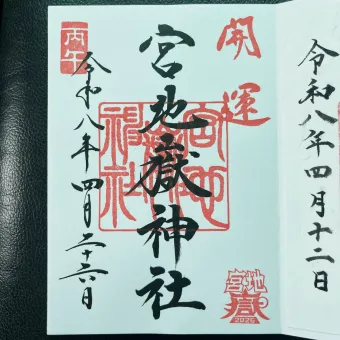 令和八年四月十二日
開運
宮地嶽神社
宮地嶽神社
丙午
令和八年四月二十六日
宮地
嶽
2026